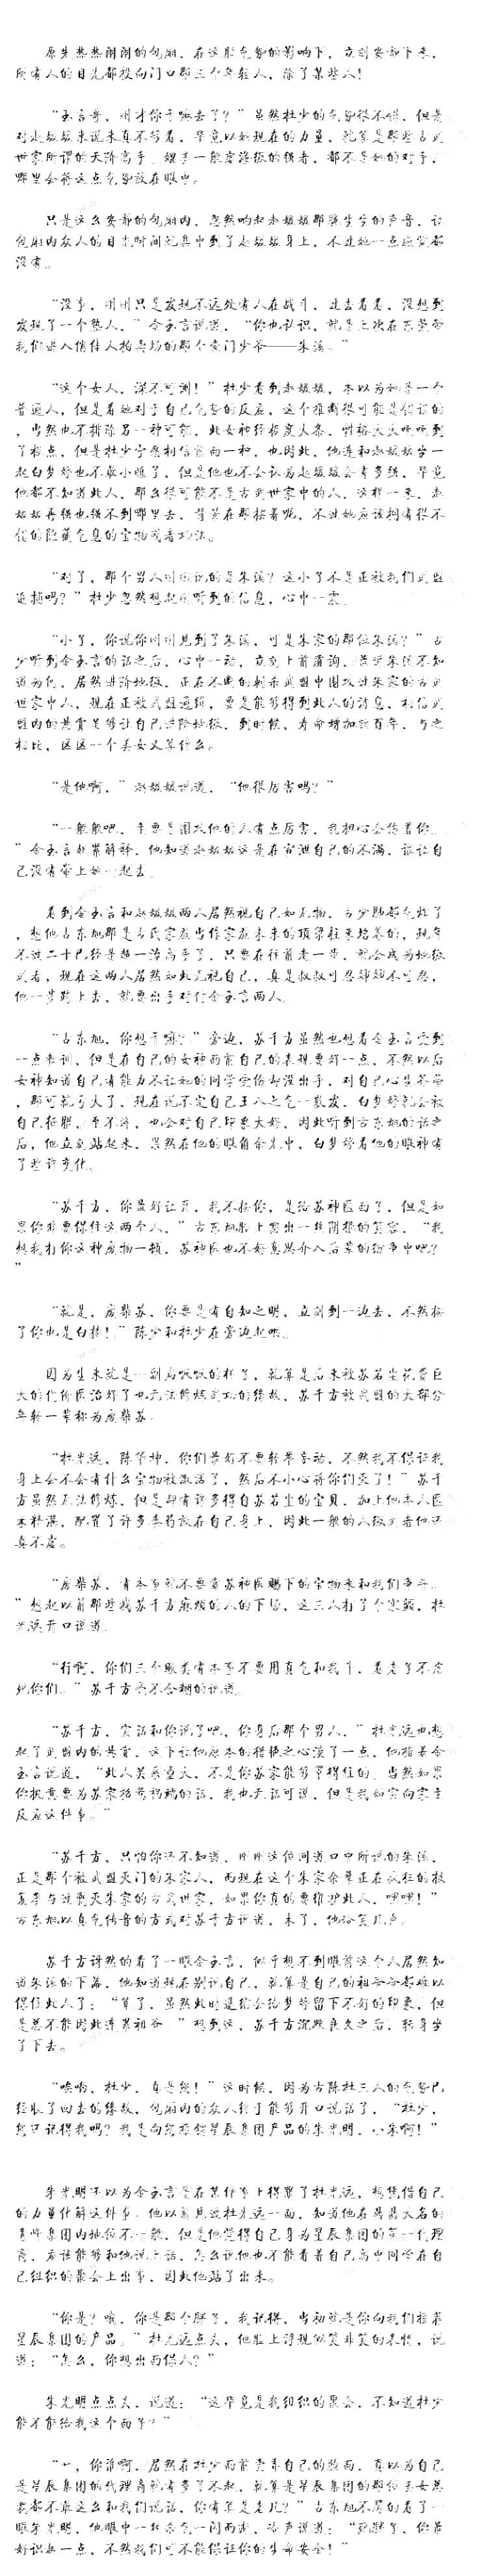 原先热热闹闹的包厢，在这股气势的影响下，立刻安静下来，
所有人的目光都投向门口那三个年轻人，除了某些人！
“玉言哥，刚才你干嘛去了？”虽然杜少的气势很不错，但是
对赵媛媛来说未真不够看，毕竟以她现在的力量，就算是那些古武
世家所谓的天阶高手，
都不是她的对手，
哪里会将这点气势放在眼中。
只是这么安静的包厢内，忽然响起赵媛媛那
的声音，让
包厢内众人的目光瞬间就集中到了赵媛媛身上，不过她一点感觉都
没有。
“没事，刚刚只是发现不远处有人在战斗，过去看看，没想到
发现了一个熟人，”
玉言说道，“你也认识，就是上次在东莞带
我们进入情侣人拍卖场的那个
门少爷——朱溪。”
“这个女人，深不可测！”杜少看到赵媛媛，本以为她是一个
普通人，但是看她对于自己气势的反应，这个推断很可能是错误的
，当然也不排除另一种可能，此女神经极度大条，
了极点，但是杜少宁愿相信前面一种，也因此，他连和赵媛媛坐一
起白梦婷也不敢小瞧了，但是他也不会认为赵媛媛会有多强，毕竟
他都不知道此人，那么很可能不是古武世家中的人，这样一来，赵
媛媛再强也强不到哪里去，背景在那摆着呢，不过她应该拥有很不
错的隐藏气息的宝物或者功法。
“对了，那个男人刚刚说的是朱溪？这小子不是正被我们武盟
追捕吗？”杜少忽然想起所听到的信息，心中一震。
“小子，你说你刚刚见到了朱溪，可是朱家的那位朱溪？”古
少听到
玉言的话之后，心中一动，立刻上前盾询，
朱溪不知
道为何，居然进阶地级，正在不断的刺杀武盟中围攻过朱家的古武
世家中人，现在正被武盟通缉，要是能够得到此人的消息，相信武
盟内的悬赏足够让自己进阶地级，到时候，寿命增加数百年，与之
相比，区区一个美女又算什么。
“是他啊，”赵媛媛说道，“他很厉害吗？”
“一般般吧，主要是围攻他的人有点厉害，我担心会伤着你。
”
玉言赶紧解释，他知道赵媛媛这是在宣泄自己的不满，谁让自
己没有带上她一起去。
看到
玉言和赵媛媛两人居然视自己如无物，古少肺都气炸了
，想他古东旭那是古氏家族当作家族未来的顶梁柱来培养的，现年
不过二十已经是超一流高手了，只要在往前走一步，就会成为地级
武者，现在这两人居然如此无视自己，真是叔叔可忍婶婶不可忍，
他一步踏上去，就要出手对付
玉言两人。
“古东旭，你想干嘛？”旁边，苏千方虽然也想看
玉言受到
一点教训，但是在自己的女神面前自己的表现要好一点，不然以后
女神知道自己有能力不让她的同学受伤却没出手，对自己心生芥蒂
，那可就亏大了，现在说不定自己王八之气一散发，白梦婷就会被
自己征服，至不济，也会对自己印象大好，因此听到古东旭的话之
后，他立刻站起来，果然在他的眼角余光中，白梦婷看他的眼神有
了些许变化。
“苏千方，你最好让开，我不揍你，是给苏神医面子，但是如
果你非要保住这两个人，”古东旭脸上露出一丝阴狠的笑容，“我
想我打你这种废物一顿，苏神医也不好意思介入后辈的纷争中吧？
”
“就是，废柴苏，你要是有自知之明，立刻到一边去，不然揍
了你也是白揍！”陈少和杜少在旁边起哄。
因为生来就是一副病怏怏的样子，就算是后来被苏若尘花费巨
大的代价医治好了也无法修炼武功的缘故，苏千方被武盟的大部分
年轻一辈称为废柴苏。
“杜光远，陈华坤，你们最好不要轻举妄动，不然我不保证我
身上会不会有什么宝物被激活了，然后不小心将你们灭了！”苏千
方虽然无法修炼，但是却有许多得自苏若尘的宝贝，加上他本人医
术精湛，配置了许多毒药放在自己身上，因此一般的人级武者他还
真不虚。
“废柴苏，有本事就不要靠苏神医赐下的宝物来和我们争斗。
”想起以前那些找苏千方麻烦的人的下场，这三人打了个寒颤，杜
光远开口说道。
“行啊，你们三个
有本事不要用真气和我斗，看老子不虐
死你们。”苏千方毫不含糊的说道。
“苏千方，实话和你说了吧，你身后那个男人，”杜光远也想
起了武盟内的悬赏，这下让他原本的猎艳之心淡了一点，他指着
玉言说道，“此人关系重大，不是你苏家能够罩得住的，当然如果
你执意要为苏家招惹祸端的话，我也无话可说，但是我如实向家主
反应这件事。”
“苏千方，只怕你还不知道，刚刚这位同道口中所说的朱溪，
正是那个被武盟灭门的朱家人，而现在这个朱家余孽正在疯狂的报
复参与过剿灭朱家的古武世家，如果你真的要维护此人，嘿嘿！”
古东旭以真气传音的方式对苏千方说道，末了，他冷笑几声。
苏千方讶然的看了一眼
玉言，似乎想不到眼前这个人居然知
道朱溪的下落，他知道想在别说自己，就算是自己的祖爷爷都难以
保住此人了：“算了，虽然此时退缩会给梦婷留下不好的印象，但
是总不能因此连累祖爷。”想到这，苏千方沉默良久之后，转身坐
了下去。
“唉哟，杜少，真是您！”这时候，因为古陈杜三人的气势已
经收了回去的缘故，包厢内的众人终于能够开口说话了，“杜少，
您还记得我吗？我是向您推销星辰集团产品的朱光明，小朱啊！”
朱光明还以为
玉言是在某件事上得罪了杜光远，想凭借自己
的力量化解这件事，他以前见过杜光远一面，知道他在鼎鼎大名的
青峰集团内地位不一般，但是他觉得自己身为星辰集团的第一代理
商，应该能够和他说上话，怎么说他也不能看着自己高中同学在自
己组织的聚会上出事，因此他站了出来。
“你是？哦，你是那个胖子，我记得，当初就是你向我们推荐
星辰集团的产品，”杜光远点头，他脸上浮现似笑非笑的表情，说
道：“怎么，你想出面保人？”
朱光明点点头，说道：“这毕竟是我组织的聚会，不知道杜少
能不能给我这个面子？”
你谁啊，居然在杜少面前卖弄自己的敖面，真以为自己
是星辰集团的代理商就有多了不起，就算是星辰集团的那位美女总
裁都不敢这么和我们说话，你有算是老几？”古东旭不屑的看了一
眼朱光明，他眼中一丝杀气一闪而过，冷声说道：“死胖子，你最
好识趣一点，不然我们可不能保证你的生命安全！”